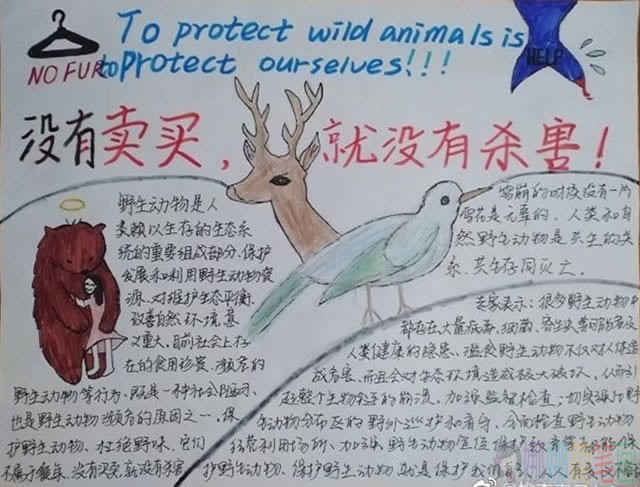 To protect wild animals is
NO FUR
to protect ourselves!!!
HELP
没有卖买，就没有杀害！
野生动物是人
类赖以生存的生态系
统的重要组成部分.保护
发展和利用野生动物资
源、对维护生态平衡、
改善自然环境意
义重大,目前社会上存
在的食用珍贵、濒危的
野生动物等行为,既是一种社会陋习,
也是野生动物濒危的原因之一,保
护野生动物、杜绝野味,它们
不属于餐桌,没有买卖,就没有杀害
雪崩的时候没有一片
雪花是无辜的、人类和自
然野生动物是共生的关
系、共生存同灭亡.
专家表示:很多野生动物
都存在大量病毒,细菌、寄生虫等可能危及
人类健康的隐患、滥食野生动物不仅对人体造
成危害,而且会对生态环境造成极大破坏、从而引
起整个生物链的崩溃、加强监督检查,切实强化野
生动物分布区的野外巡护和看守、全面检查野生动物
经营利用场所、加强野生动物宣传保护教育
护野生动物、保护野生动物就是保护我们自